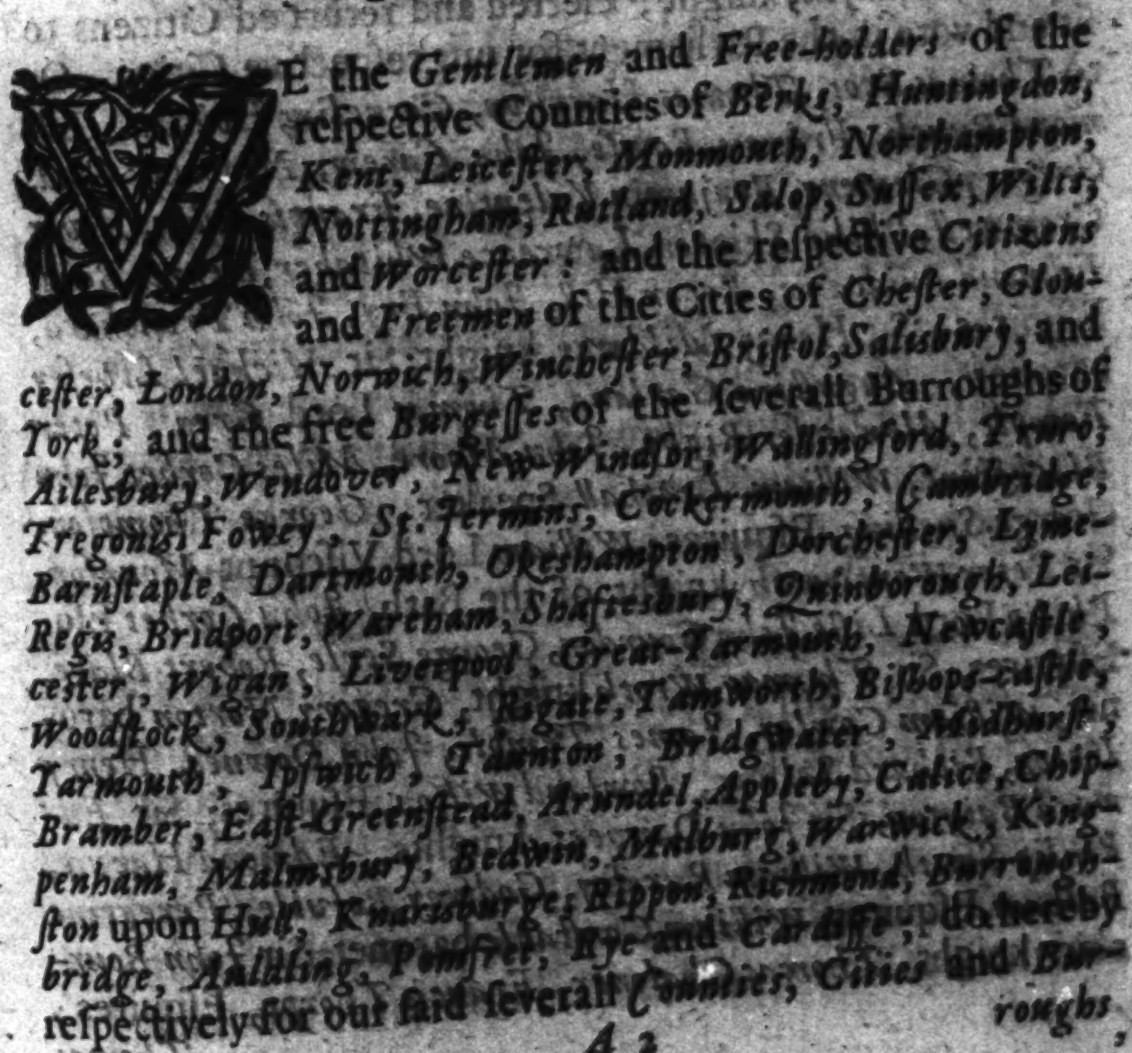 WE the Gentlemen and Free-holders of the
reſpective Counties of Berks, Huntingdon,
Kent, Leiceſter, Monmouth, Northampton,
Nottingham, Rutland, Salop, Suſſex, Wilts,
and Worceſter: and the reſpective Citizens
and Freemen of the Cities of Cheſter, Glou-
ceſter, London, Norwich, Wincheſter, Briſtol, Salisbury, and
York; and the free Burgeſſes of the ſeverall Burroughs of
Ailesbury, Wendover, New-Windſor, Wallingford, Truro,
Tregonisi Fowey, St. Jermins, Cockermouth, Cambridge,
Barnſtaple, Dartmouth, Okeshampton, Dorcheſter, Lyme-
Regis, Bridport, Wareham, Shaftesbury, Quinborough, Lei-
ceſter, Wigan, Liverpool, Great-Yarmouth, Newcaſtle,
Woodſtock, Southwark, Rigate, Tamworth, Biſhops-caſtle,
Yarmouth, Ipſwich, Taunton, Bridgwater, Midhurſt,
Bramber, Eaſt-Greenſtead, Arundel, Appleby, Calice, Chip-
penham, Malmsbury, Bedwin, Malburg, Warwick, King-
ſton upon Hull, Knarisburge, Rippon, Richmond, Burrough-
bridge, Auldling, Pomfret, Rye and Cardiffe, do hereby
reſpectively for our ſaid ſeverall Counties, Cities and Bur-
roughs,
A 2